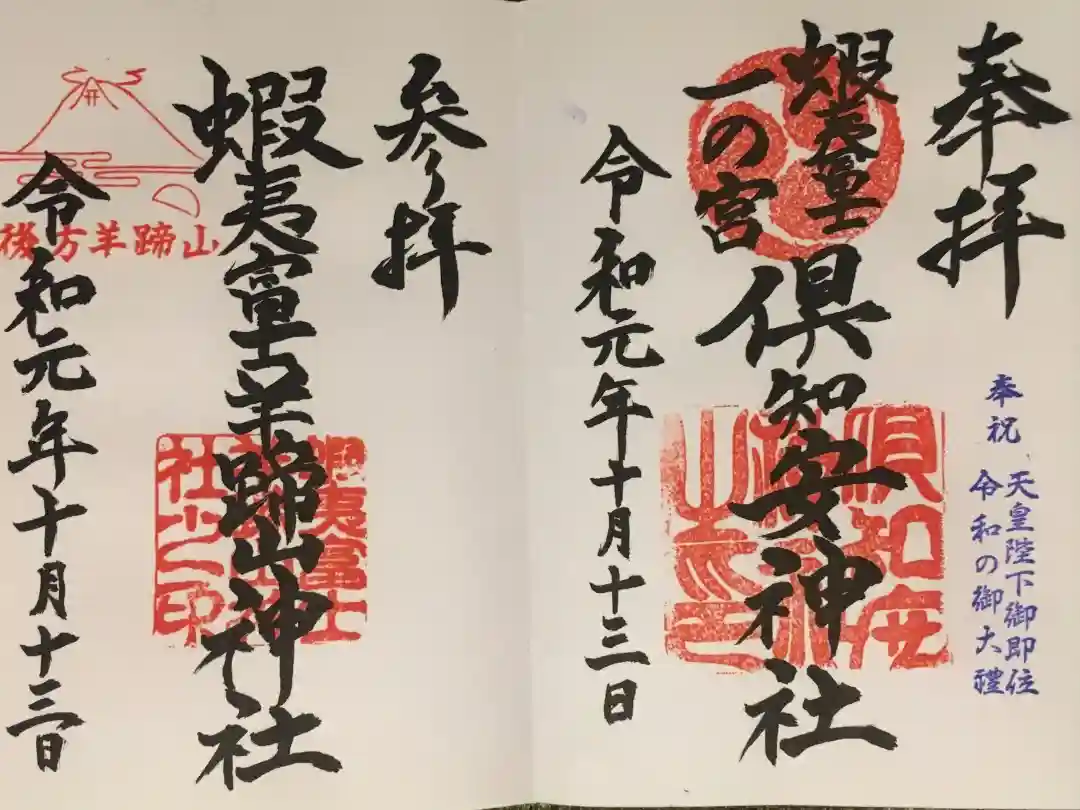 奉拝
奉祝 天皇陛下御即位
令和の御大禮
蝦夷富士
一の宮
倶知安神社
倶知安
神社
之印
令和元年十月十三日
参拝
蝦夷富士羊蹄山神社
蝦夷富士
羊蹄山神
社之印
後方羊蹄山
令和元年十月十三日